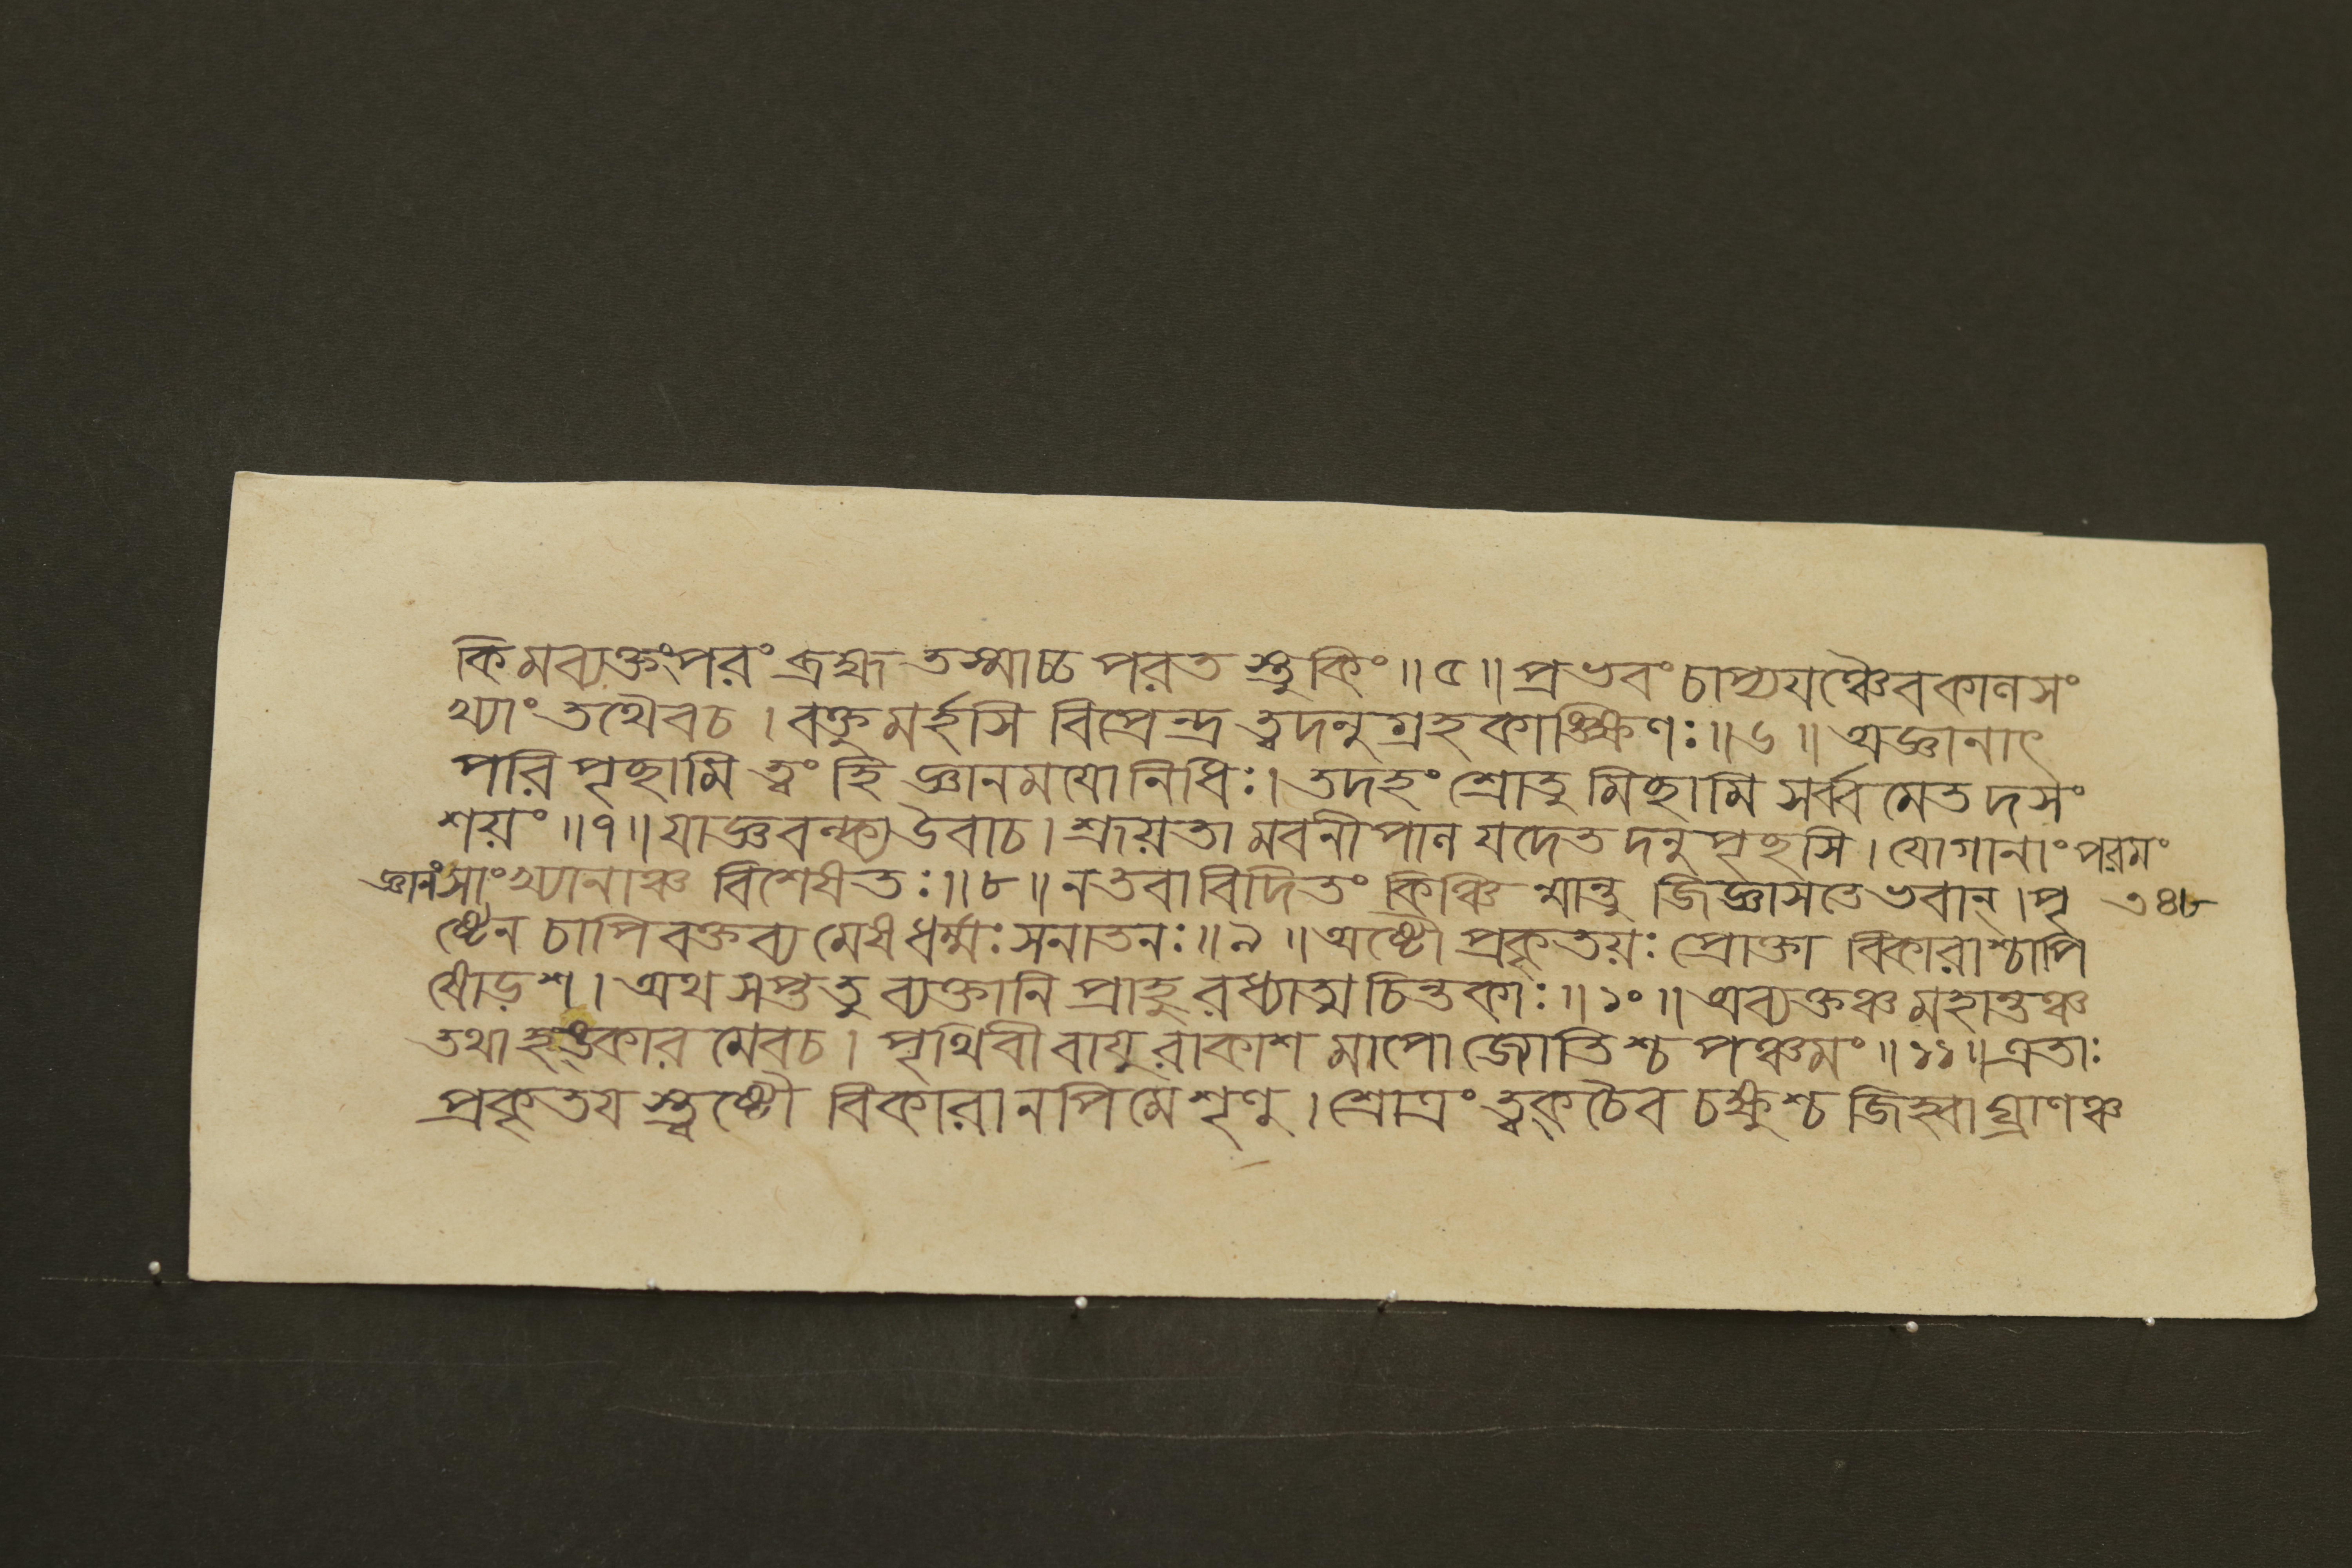 কিমব্যক্তংপরং ব্রহ্ম তস্মাচ্চ পরত স্তুকিং॥৫॥প্রভবং চাপ্যযঞ্চৈবকাণসং
খ্যাং তথৈবচ। বক্তুমর্হসি বিপ্রেন্দ্র ত্বদনুগ্রহকাঙ্ক্ষিণঃ॥৬॥ অজ্ঞানাৎ
পরি পৃচ্ছামি ত্বং হি জ্ঞানময়োনিধিঃ। তদহং শ্রোতু মিচ্ছামি সর্ব্ব মেত দসং
শয়ং॥৭॥ যাজ্ঞবল্ক্য উবাচ। শ্রূয়তা মবনীপাণ যদেত দনু পৃচ্ছসি। যোগানাং পরমং
জ্ঞানং সাংখ্যানাঞ্চ বিশেষতঃ॥৮॥ নতবাবিদিতং কিঞ্চি ন্মান্তু জিজ্ঞাসতেভবান্।পৃ ৩৪৮
ষ্টেন চাপিবক্তব্য মেষধর্ম্মঃ সনাতনঃ॥৯॥ অষ্টৌ প্রকৃতয়ঃ প্রোক্তা বিকারাশ্চাপি
ষোড়শ। অথ সপ্ততু ব্যক্তানি প্রাহুরধ্যাত্ম চিন্তকাঃ॥১০॥ অব্যক্তঞ্চ মহান্তঞ্চ
তথাহঙ্কার মেবচ। পৃথিবী বাযুরাকাশ মাপো জ্যোতিশ্চ পঞ্চমং॥১১॥এতাঃ
প্রকৃতয স্ত্বষ্টৌ বিকারানপিমে শৃণু। শ্রোত্রং ত্বক্ চৈব চক্ষুশ্চ জিহ্বাঘ্রাণঞ্চ